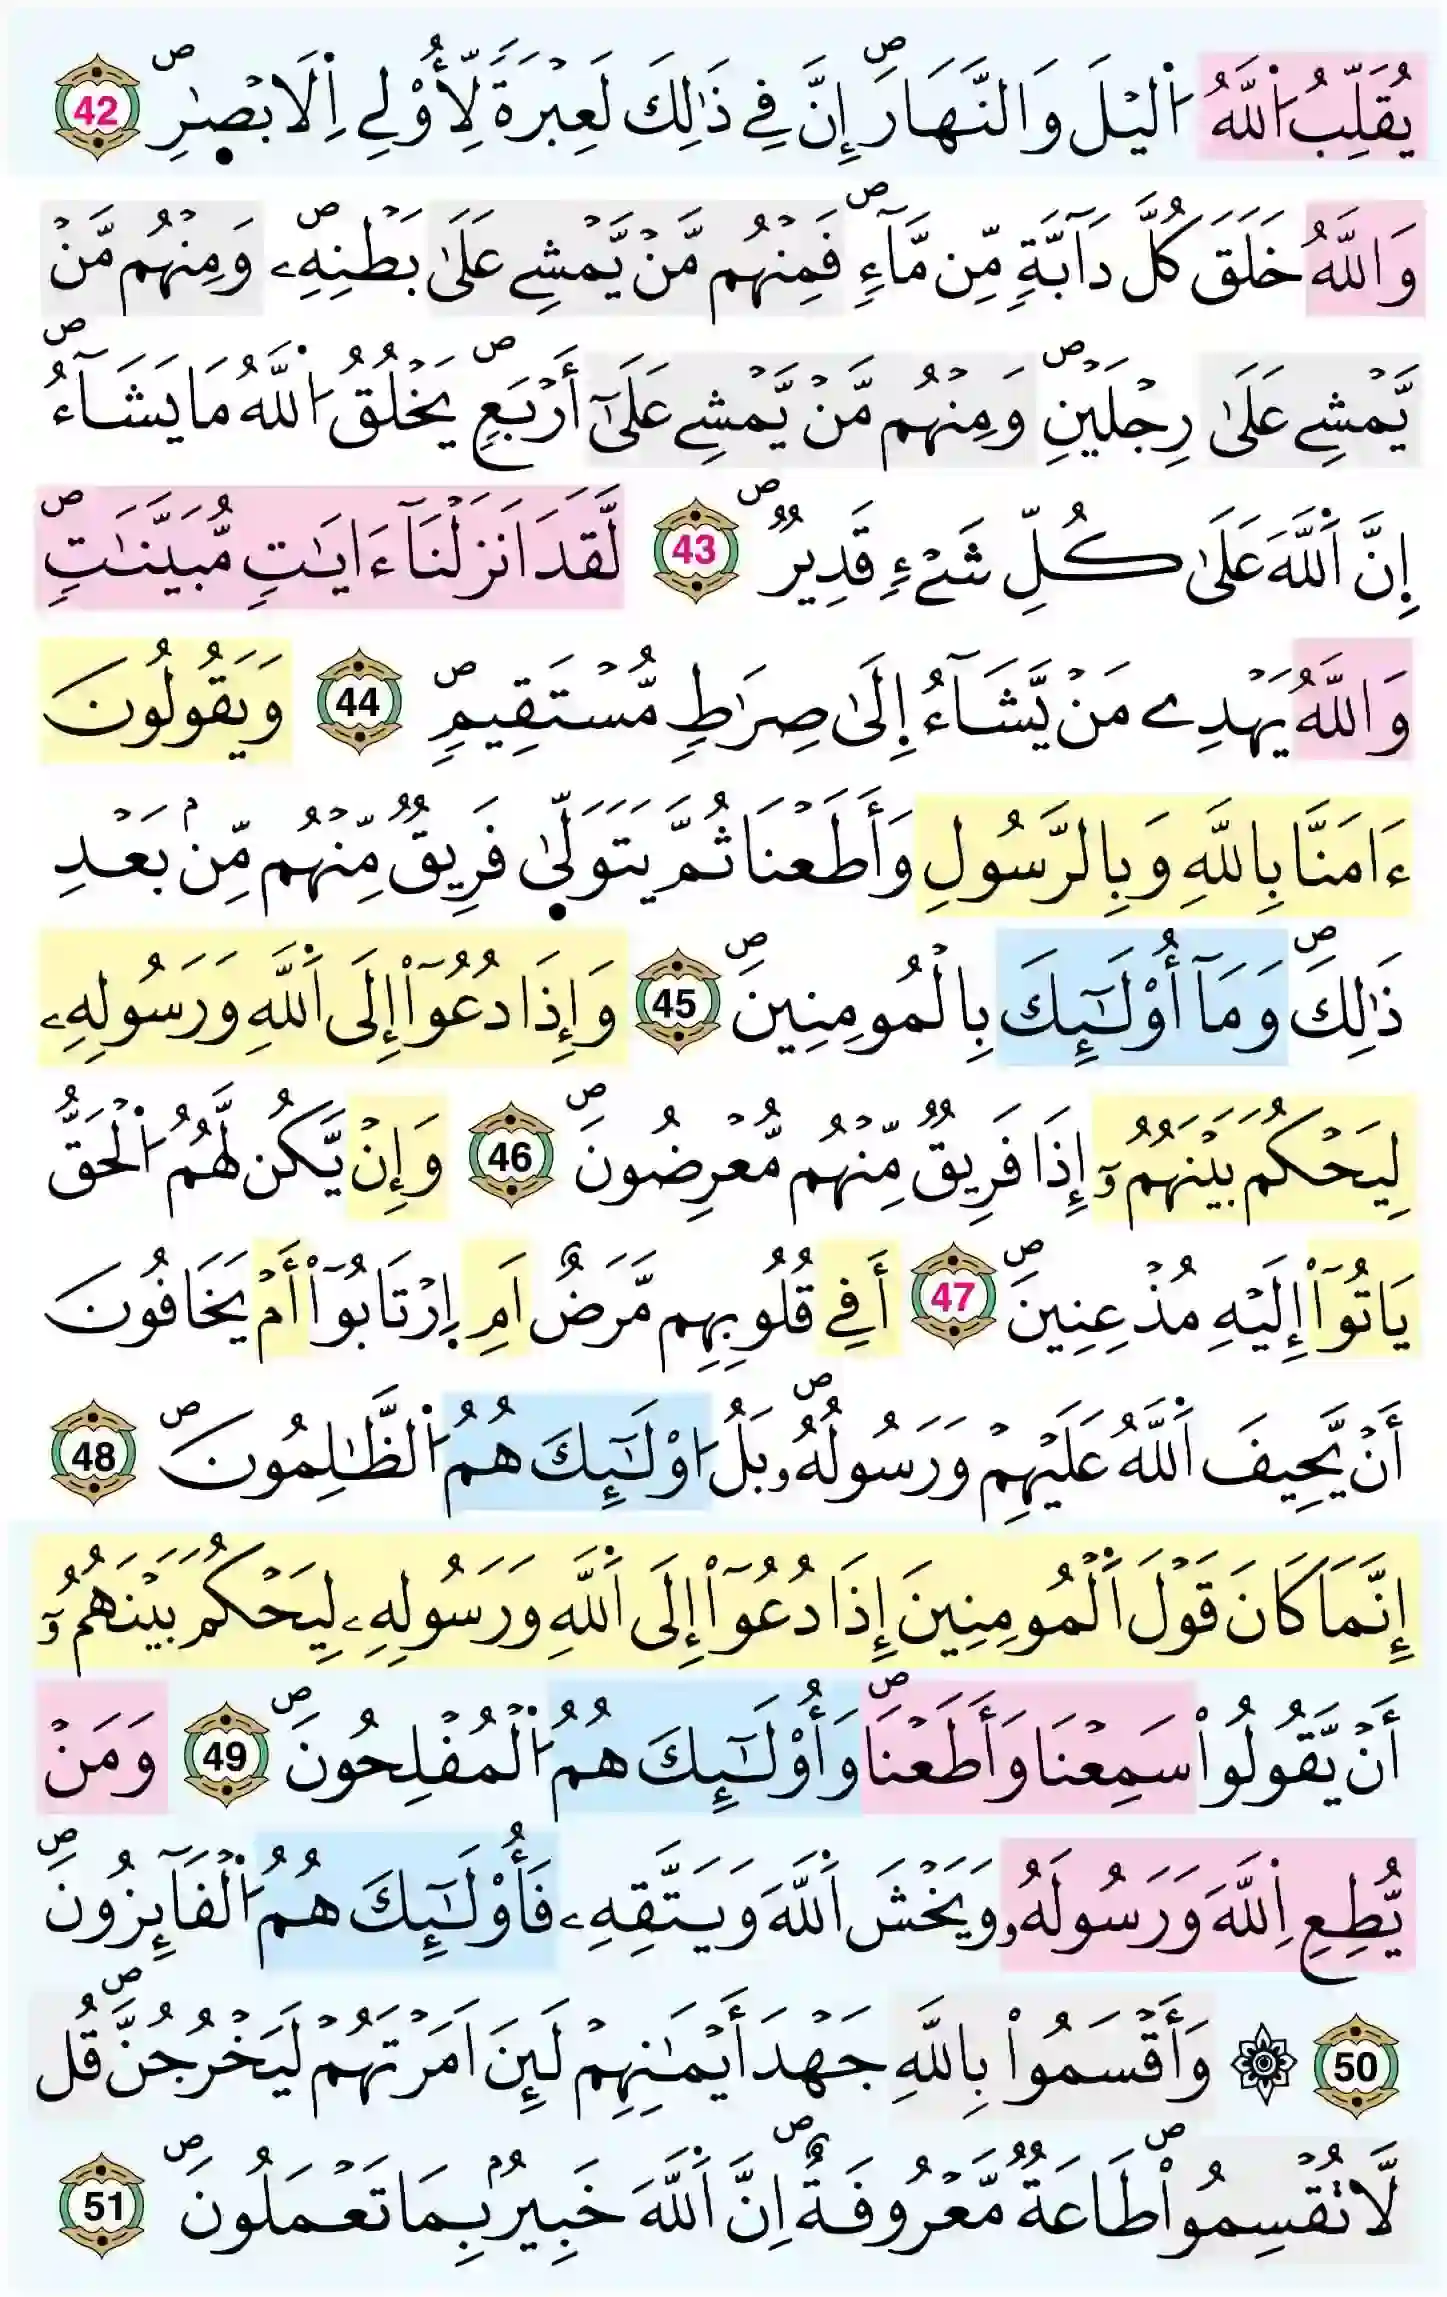 يُقَلِّبُ اُ۬للَّهُ اُ۬ليْلَ وَالنَّهَارَۖ إِنَّ فِے ذَٰلِكَ لَعِبْرَةٗ لِّأُوْلِے اِ۬لَابْصٰ۪رِۖ 42
وَاللَّهُ خَلَقَ كُلَّ دَآبَّةٖ مِّن مَّآءٖۖ فَمِنْهُم مَّنْ يَّمْشِے عَلَىٰ بَطْنِهِۦۖ وَمِنْهُم مَّنْ
يَّمْشِے عَلَىٰ رِجْلَيْنِۖ وَمِنْهُم مَّنْ يَّمْشِے عَلَىٰٓ أَرْبَعٖۖ يَخْلُقُ اُ۬للَّهُ مَا يَشَآءُۖ
إِنَّ اَ۬للَّهَ عَلَىٰ كُلِّ شَےْءٖ قَدِيرٞۖ 43 لَّقَدَ اَنزَلْنَآ ءَايَٰتٖ مُّبَيَّنَٰتٖۖ
وَاللَّهُ يَهْدِے مَنْ يَّشَآءُ اِ۪لَىٰ صِرَٰطٖ مُّسْتَقِيمٖۖ 44 وَيَقُولُونَ
ءَامَنَّا بِاللَّهِ وَبِالرَّسُولِ وَأَطَعْنَا ثُمَّ يَتَوَلّ۪ىٰ فَرِيقٞ مِّنْهُم مِّنۢ بَعْدِ
ذَٰلِكَۖ وَمَآ أُوْلَٰٓئِكَ بِالْمُومِنِينَۖ 45 وَإِذَا دُعُوٓاْ إِلَى اَ۬للَّهِ وَرَسُولِهِۦ
لِيَحْكُمَ بَيْنَهُمُۥٓ إِذَا فَرِيقٞ مِّنْهُم مُّعْرِضُونَۖ 46 وَإِنْ يَّكُن لَّهُمُ اُ۬لْحَقُّ
يَاتُوٓاْ إِلَيْهِ مُذْعِنِينَۖ 47 أَفِے قُلُوبِهِم مَّرَضٌ اَمِ اِ۪رْتَابُوٓاْ أَمْ يَخَافُونَ
أَنْ يَّحِيفَ اَ۬للَّهُ عَلَيْهِمْ وَرَسُولُهُۥۖ بَلُ ا۟وْلَٰٓئِكَ هُمُ اُ۬لظَّٰلِمُونَۖ 48
إِنَّمَا كَانَ قَوْلَ اَ۬لْمُومِنِينَ إِذَا دُعُوٓاْ إِلَى اَ۬للَّهِ وَرَسُولِهِۦ لِيَحْكُمَ بَيْنَهُمُۥٓ
أَنْ يَّقُولُواْ سَمِعْنَا وَأَطَعْنَاۖ وَأُوْلَٰٓئِكَ هُمُ اُ۬لْمُفْلِحُونَۖ 49 وَمَنْ
يُّطِعِ اِ۬للَّهَ وَرَسُولَهُۥ وَيَخْشَ اَ۬للَّهَ وَيَتَّقِهِۦ فَأُوْلَٰٓئِكَ هُمُ اُ۬لْفَآئِزُونَۖ
50 ۞ وَأَقْسَمُواْ بِاللَّهِ جَهْدَ أَيْمَٰنِهِمْ لَئِنَ اَمَرْتَهُمْ لَيَخْرُجُنَّۖ قُل
لَّا تُقْسِمُواْۖ طَاعَةٞ مَّعْرُوفَةٌۖ اِنَّ اَ۬للَّهَ خَبِيرُۢ بِمَا تَعْمَلُونَۖ 51